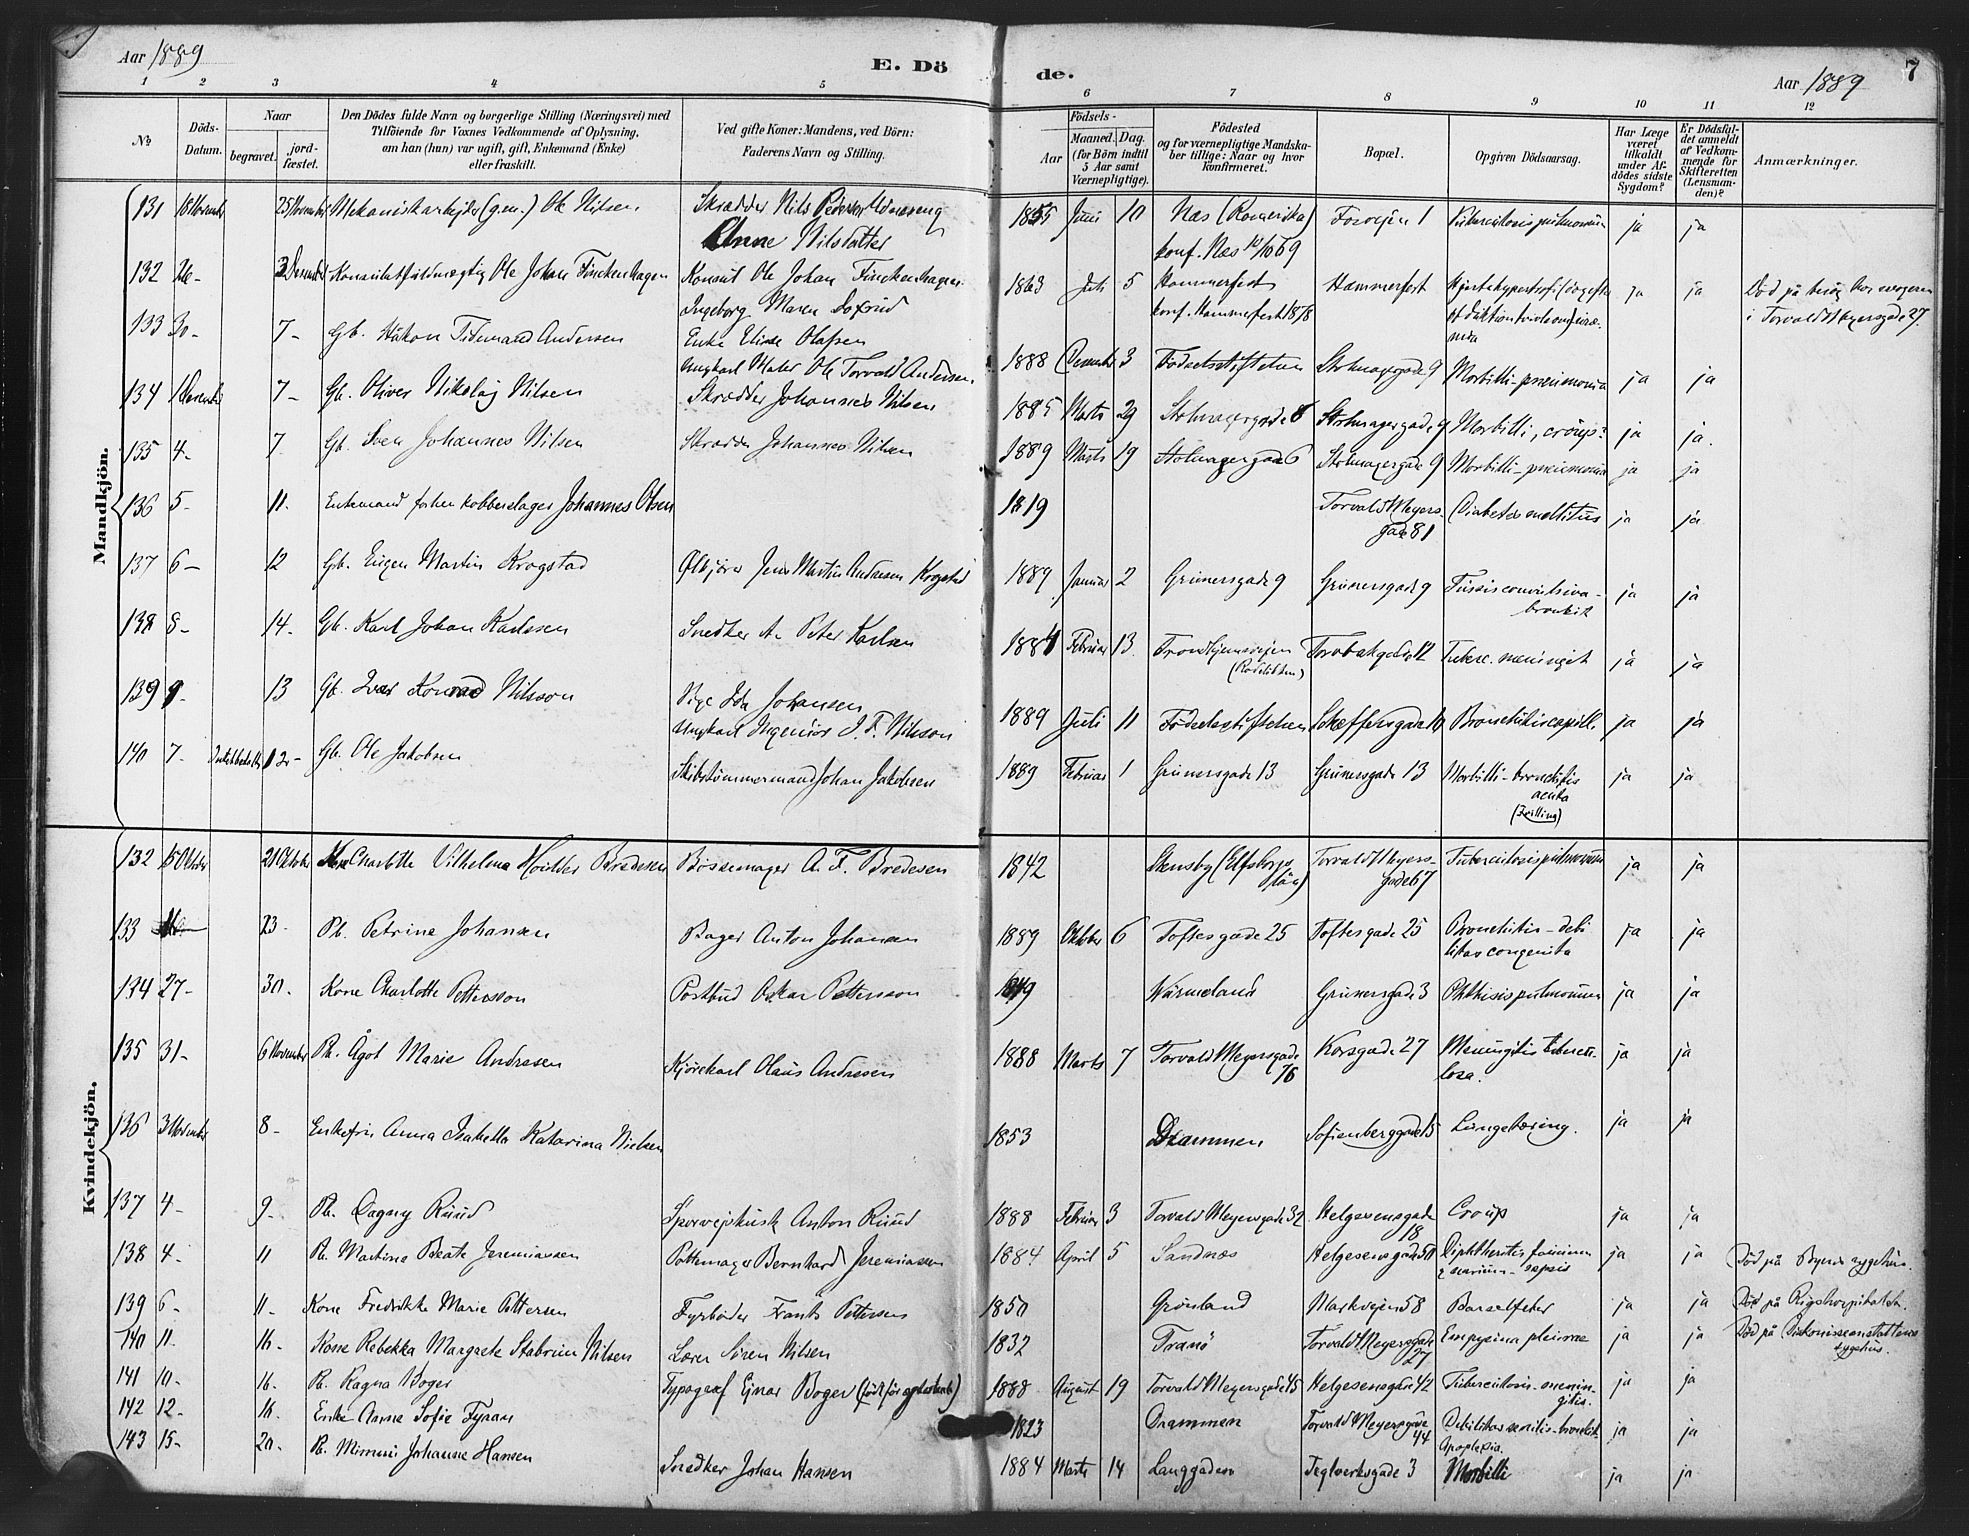 Aar 1889
E. Dö
de.
Aar 1889
7
1 2 3 4 5 6 7 8 9 10 11 12
No
Döds-Datum.
Naar
begravet.
jord-fæstet.
Den Dödes fulde Navn og borgerlige Stilling (Næringsvei) med
Tilföiende for Voxnes Vedkommende af Oplysning,
om han (hun) var ugift, gift, Enkemand (Enke)
eller fraskilt.
Ved gifte Koner: Mandens, ved Börn:
Faderens Navn og Stilling.
Födsels-
Aar
Maaned.
Dag.
(for Börn indtil
5 Aar samt
Værnepligtige).
Födested
og for værnepligtige Mandska-
ber tillige: Naar og hvor
konfirmeret.
Bopæl.
Opgiven Dödsaarsag.
Har Læge
været
tilkaldt
under Af-
dödes sidste
Sygdom?
Er Dödsfal-
det anmeldt
af Vedkom-
mende for
Skifteretten
(Lensman-
den)?
Anmærkninger.
Mandkjön.
131 18 November 25 November Mekanisk arbejder (g.m.) Ole Nilsen Skrædder Nils Pedersen 1855 Juni 10 Næs (Romerike) 1 Tuberculosis pulmonum ja ja
Anne Nilsdatter konf. Næs 10/10 69
132 26- 3 Desember Ole Johan Finckenhagen Konsul Ole Johan Finckenhagen 1863 Juli 5 Hammerfest Hammerfest ja ja Död på besög hos svogeren
Ingeborg Maren konf. Hammerfest 1878 i Torvald Meyersgade 27.
133 30- 7- Gb. Håkon Fidemand Andersen Enke Elise Olafsen 1888 Desember 3 Födselsstiftelsen Stolmagergade 9 Morbilli-pneumonia ja ja
Ungkarl Maler Ole Torvald Andersen.
134 1 Desember 7- Gb. Oliver Nikolaj Nilsen Skrædder Johannes Nilsen 1885 Marts 29 Stolmagergade 6 Stolmagergade 9 Morbilli, croup? ja ja.
135 4- 7 Gb. Sven Johannes Nilsen Skrædder Johannes Nilsen 1889 Marts 19 Stolmagergade 6 Stolmagergade 9 Morbilli-pneumonia ja ja
136 5- 11. Enkemand forhen kobberslager Johannes Olsen 1819 Torvald Meyers-
gade 81 Diabetes mellitus ja ja
137 6- 12 Gb. Eugen Martin Krogstad Ølkjörer Jens Martin Andresen Krogstad 1889 Januar 2 Grünersgade 9 Grünersgade 9 Tussis convulsiva-
bronkit ja ja
138 8- 14- Gb. Karl Johan Karlsen Snedker A. Peter Karlsen 1884 Februar 13. Trondhjemsvejen
(Rodelökken) 12 Tuberc. meningit ja ja
139 9- 13 Gb. Ivar Konrad Nilsson Pige Ida Johansen 1889 Juli 11 Födselsstiftelsen Bronchitis capill. ja ja
Ungkarl Ingeniör J. F. Nilsson
140 7- 12- Gb. Ole Jakobsen Skibstömmermand Johan Jakobsen 1889 Februar 1 Grünersgade 13 Grünersgade 13 Morbilli-bronchitis
acuta
(Tvilling) ja ja
Kvindekjön.
132 15 Oktober 21 Oktober Kone Charlotte Vilhelmine Bredesen Bössemager A. F. Bredesen 1842 (Elfsborgs
län) Torvald Meyers-
gade 67 Tuberculosis pulmonum ja ja
133 23- Pb. Petrine Johansen Bager Anton Johansen 1889 Oktober 6 Toftesgade 25 Toftesgade 25 Bronchitis-debi
litas congenita ja ja
134 27- 30. Kone Charlotte Pettersson Postbud Oskar Pettersson 1849 Wärmeland Grünersgade 3 Phthisis pulmonum ja ja
135 31- 6 November Pb. Ågot Marie Andresen Kjörekarl Olaus Andresen 1888 Marts 7 Torvald Meyersgade
76 Korsgade 27 Meningitis tubercu-
losa. ja ja
136 3 November 8- Enkefru Anna Isabella Katarina Nielsen 1853 Drammen Sofienberggade 15 Lungetæring. ja ja
137 4- 9- Pb. Dagny Ruud Sporvejskusk Anton Ruud 1888 Februar 3 Torvald Meyersgade 32 Helgesensgade
18 Croup ja ja
138 4- 11 Pb. Martine Beate Jeremiassen Pottemager Bernhard Jeremiassen 1884 April 5 Sandnæs Helgesensgade 50 sepsis ja ja Död på Byens sygehus.
139 6- 11- Kone Fredrikke Marie Pettersen Fyrböder Frants Pettersen 1850 Grönland Markvejen 58 Barselfeber ja ja Död på Rigshospitalet.
140 11- 16- Kone Rebekka Margrete Stabrun Nilsen Lærer Sören Nilsen 1832 Tranö Torvald Meyersgade
27 Empyema pleurae ja ja Död på Diakonisseanstaltens
sygehus.
141 10- 16- Pb. Ragna Boger Typograf Ejnar Boger (födt för ægteskab) 1888 August 19 Torvald Meyersgade 45 Helgesensgade 42 Tuberculosis-menin-
gitis. ja ja
142 12- 16 Enke Anne Sofie Fyran 1823 Drammen Torvald Meyersgade
44 Debilitas senilis-bronkit
Apoplexia. ja ja
143 15- 20- Pb. Mimmi Johanne Hansen Snedker Johan Hansen 1884 Marts 14 Langgaden Teglverksgade 3 Morbilli ja ja